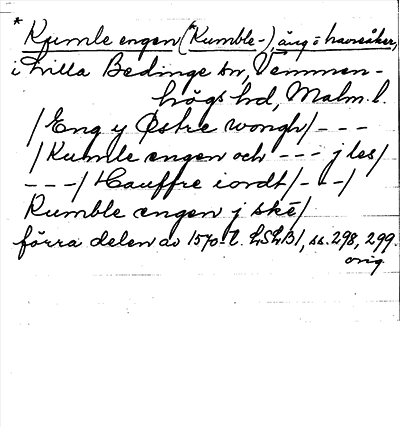 *Kumle engen (*Kumble-), äng o havreåker,
i Lilla Bedinge sn, Vemmen-
högs hd, Malm. l.
/Eng y Østre wongh/ - - -
/Kumle engen och - - - j les/
- - -/ Hauffre iordt/ - - -/
Kumble engen j skē/
förra delen av 1570-t. LSLB1, ss. 298, 299.
orig.